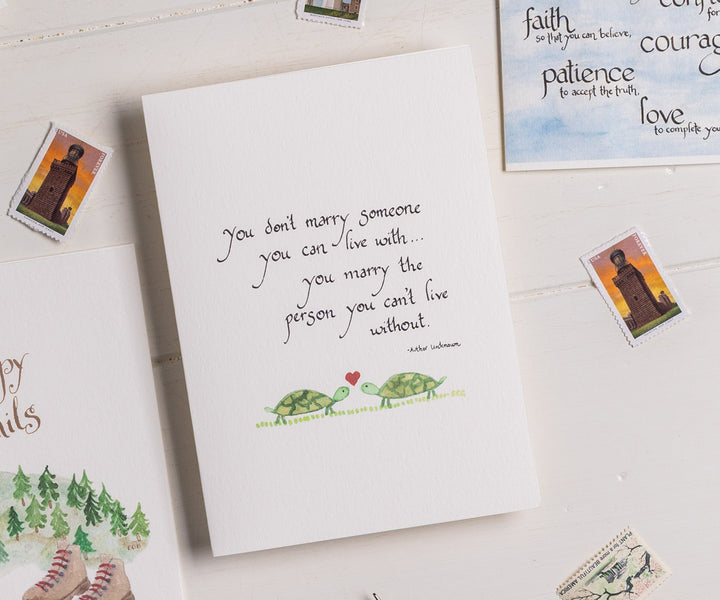 you don't marry someone
you can live with...
you marry the
person you can't live
without.
-Author Unknown
faith
so that you can believe,
courag
patience
to accept the truth,
love
to complete you
ppy
ails
USA
FOREVER
USA
FOREVER
PLANT for a more BEAUTIFUL AMERICA